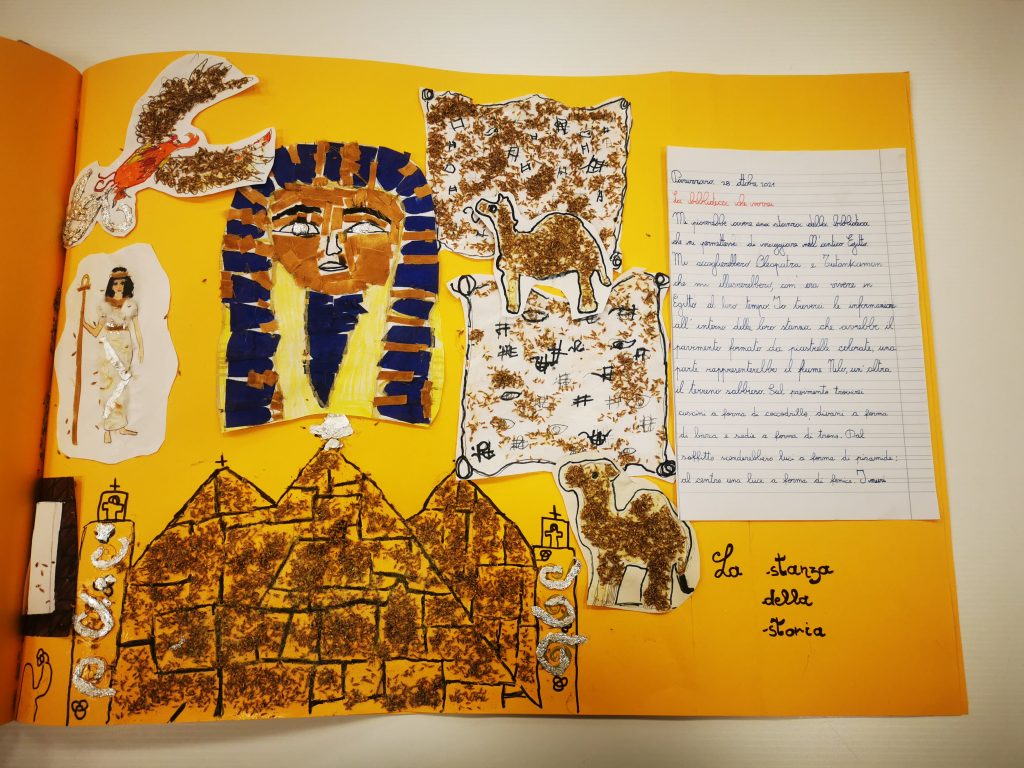 28 ottobre 2021
La biblioteca che vorrei
Mi piacerebbe avere una stanza della biblioteca
che mi permettesse di viaggiare nell'antico Egitto.
Mi accoglierebbero Cleopatra e Tutankamon
che mi illustrerebbero, com'era vivere in
Egitto al loro tempo. Io troverei le informazioni
all'interno della loro stanza che avrebbe il
pavimento formato da piastrelle colorate, una
parte rappresenterebbe il fiume Nilo, un'altra
il terreno sabbioso. Sul pavimento troverei
cuscini a forma di coccodrillo, divani a forma
di barca e sedie a forma di trono. Dal
soffitto scenderebbero luci a forma di piramide;
al centro una luce a forma di fenice. I muri
La stanza
della
storia